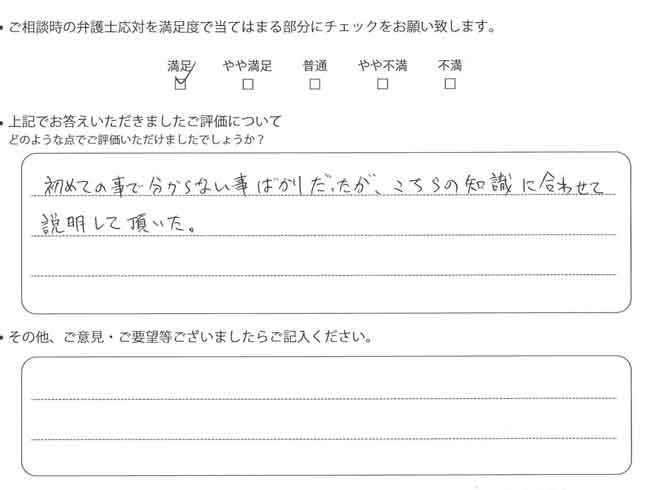 ・ご相談時の弁護士応対を満足度で当てはまる部分にチェックをお願い致します。
満足 やや満足 普通 やや不満 不満
☑ □ □ □ □
・上記でお答えいただきましたご評価について
どのような点でご評価いただけましたでしょうか？
初めての事で分からない事ばかりだったが、こちらの知識に合わせて
説明して頂いた。
・その他、ご意見・ご要望等ございましたらご記入ください。